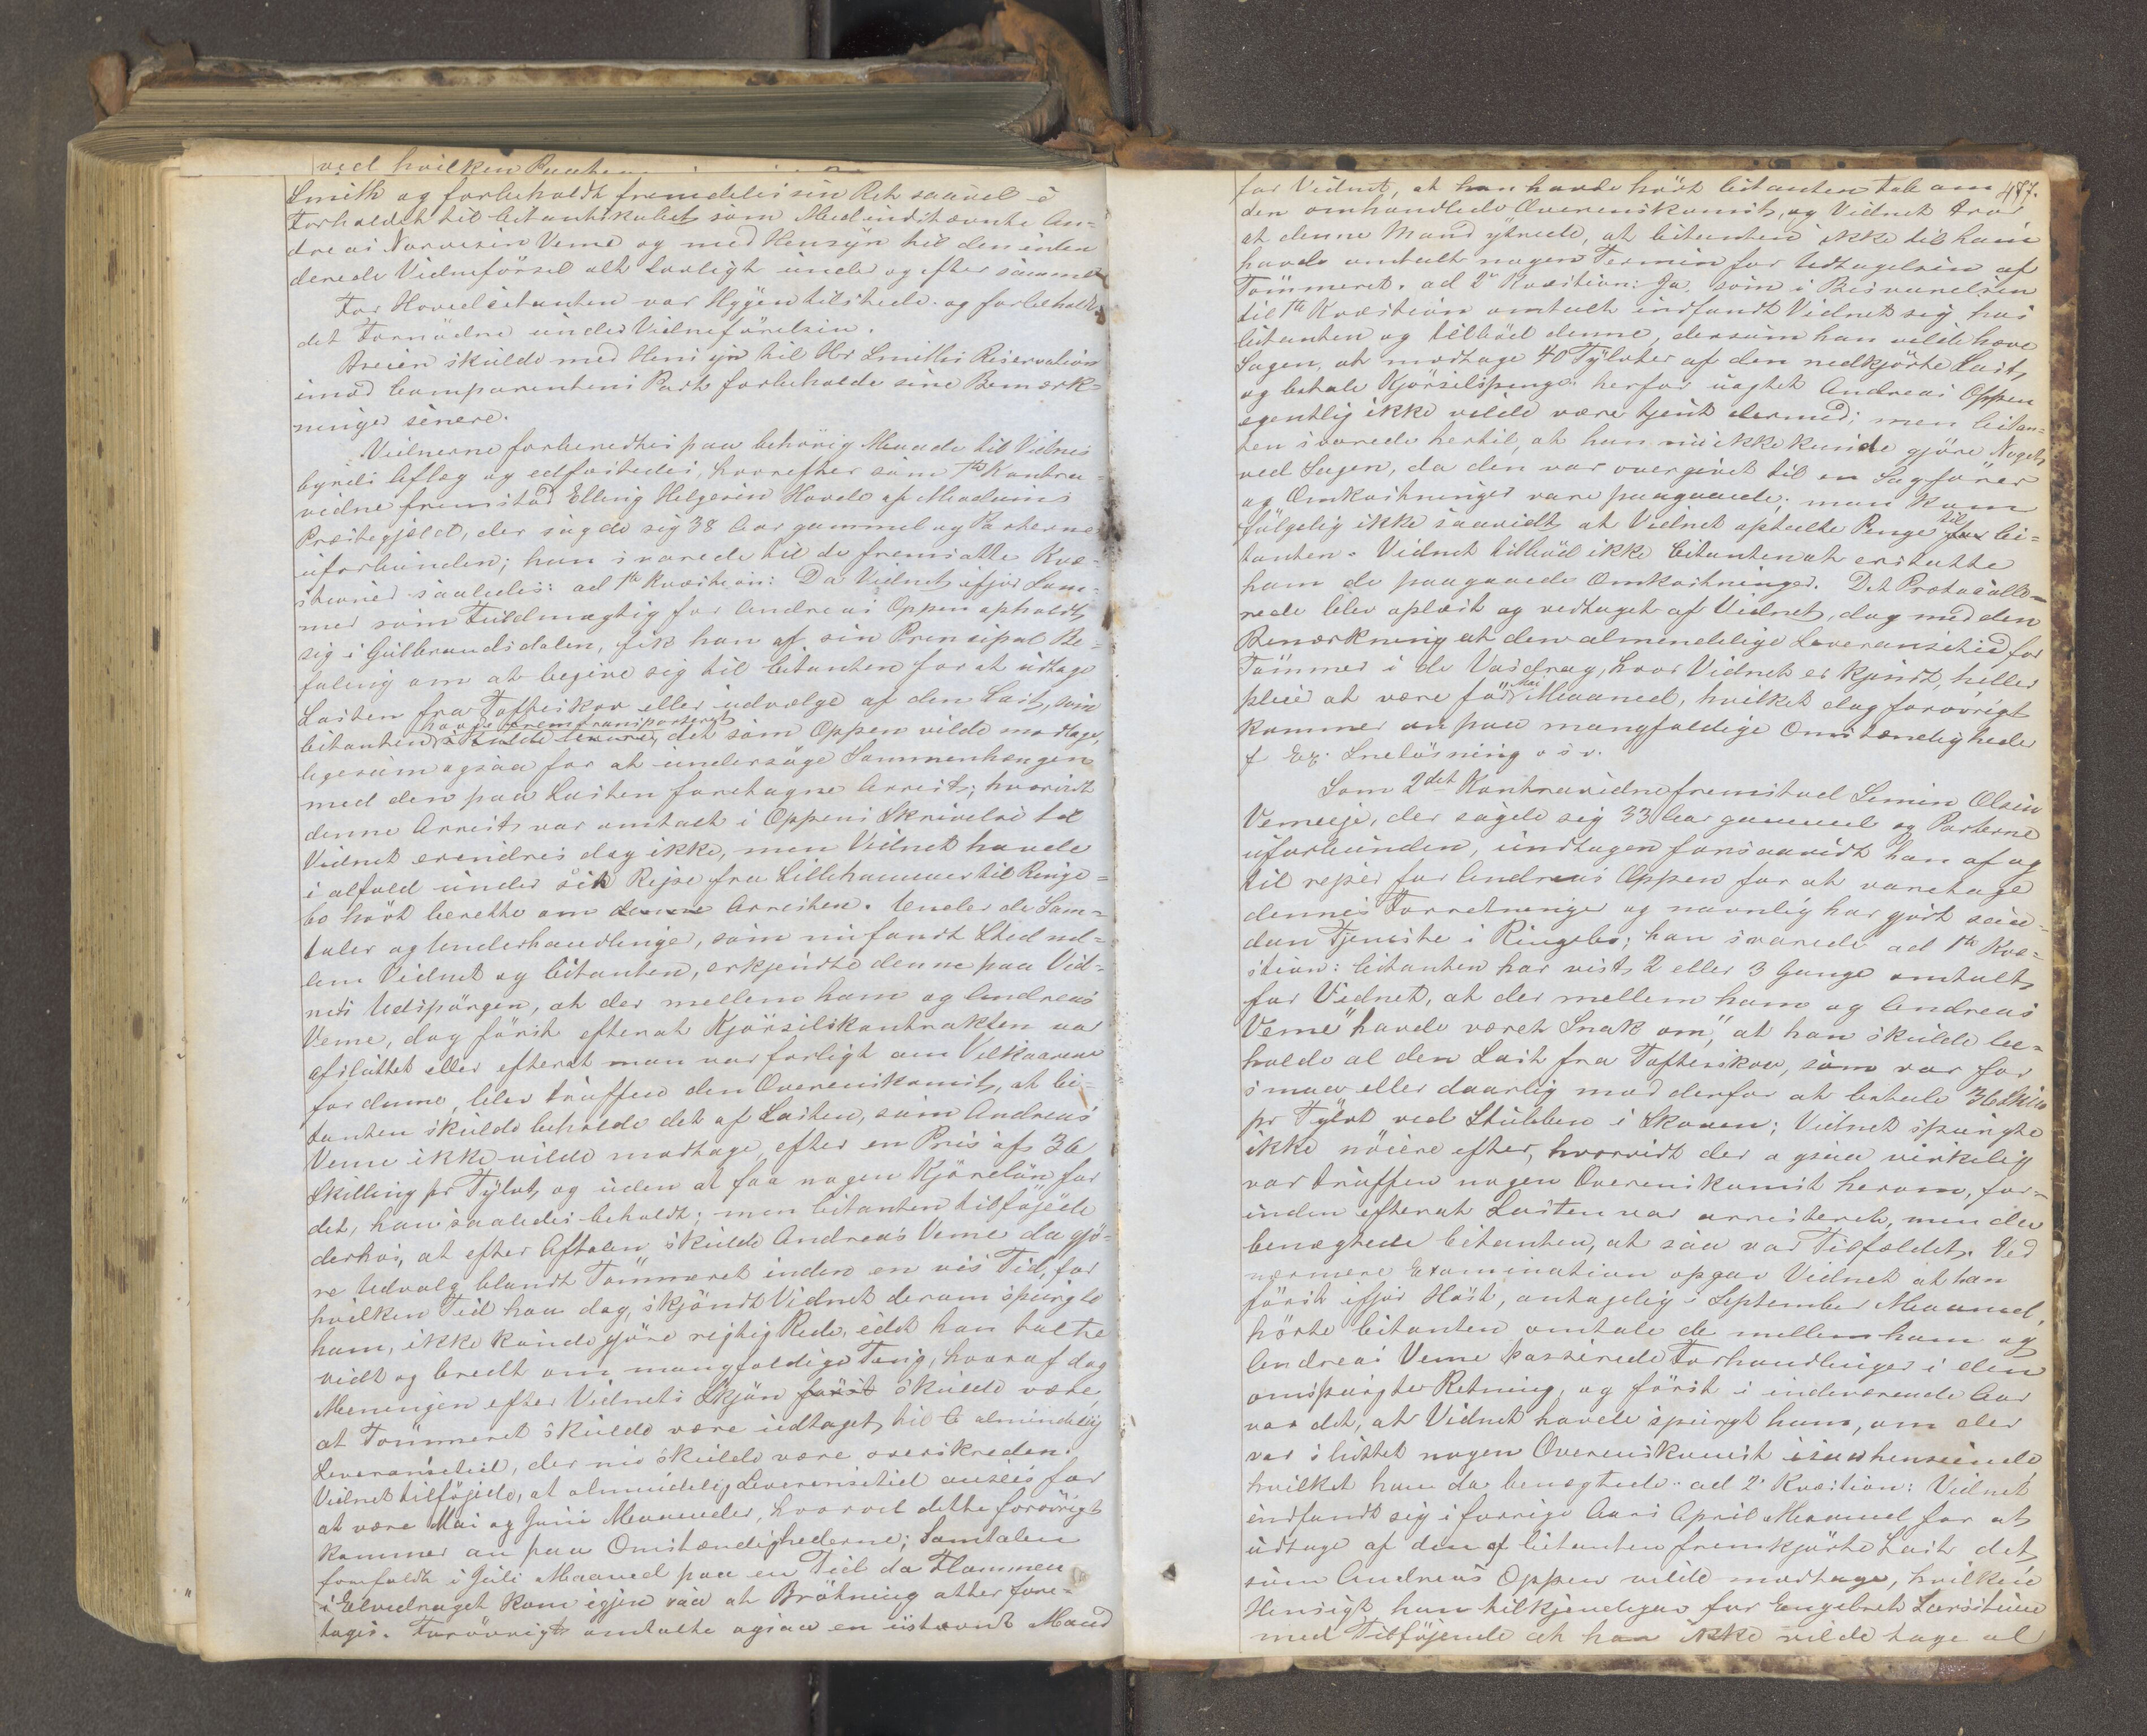 ved hvilken
Smith og forbeholdt fremdeles sin Ret saavel i
Forholdet til Citantskabet som Medindstævnte An-
dreas Narvesen Veme og med Hensyn til den inten
derede Vidneførsel alt Lovligt under og efter samme
For Hovedcitanten var Hygen tilstede og forbeholdt
det Fornødne under Vidneførelsen.
Breien skulde med Hensyn til Hr Smiths Reservation
imod Comparentens Part forbeholde sine Bemærk-
ninger senere.
Vidnerne forberedtes paa behørig Maade til Vidnes
byrds Aflæg og edfæstedes, hvorefter som 1ste Kontra-
vidne fremstod Elling Helgesen Hovde af Modums
Præstegjæld, der sagde sig 38 Aar gammel og Parterne
uforbunden; han svarede til de fremsatte Kvæ-
stioner saaledes: ad 1ste Kvæstion: Da Vidnet ifjor Som-
mer som Fuldmægtig for Andreas Oppen opholdt
sig i Gulbrandsdalen, fik han af sin Prinsipal Be-
faling om at begive sig til Citanten for at udtage
Lasten fra Tofteskov eller udvælge af den Last, som
havde fremtransporteret
Citanten skulde levere, det som Oppen vilde modtage,
ligesom ogsaa for at undersøge Sammenhængen
med den paa Lasten foretagne Arrest; hvorvidt
denne Arrest var omtalt i Oppens Skrivelse til
Vidnet erindres dog ikke, men Vidnet havde
i alfald under sin Rejse fra Lillehammer til Ringe-
bo hørt berette om denne Arresten. Under de Sam-
taler og Underhandlinger, som nu fandt Sted mel-
lem Vidnet og Citanten, erkjendte denne paa Vid-
nets Udspørgen, at der mellem ham og Andreas
Veme, dog først efterat Kjørselskontrakten var
afsluttet eller efterat man var forligt om Vilkaarene
for denne, blev truffen den Overenskomst, at Ci-
tanten skulde beholde det af Lasten, som Andreas
Veme ikke vilde modtage, efter en Pris af 36
Skilling pr Tylvt, og uden at faa nogen Kjøreløn for
det, han saaledes beholdt; men Citanten tilføjede
derhos, at efter Aftalen skulde Andreas Veme da gjø-
re Udvalg blandt Tømmeret inden en vis Tid, for
hvilken Tid han dog, skjøndt Vidnet derom spurgte
ham, ikke kunde gjøre rigtig Rede, idet han talte
vidt og bredt om mangfoldige Ting, hvoraf dog
Meningen efter Vidnets Skjøn først skulde være,
at Tømmeret skulde være udtaget til almindelig
Leveransetid, der nu skulde være overskreden.
Vidnet tilføjede, at almindelig Leveransetid ansees for
at være Mai og Juni Maaneder, hvorvel dette forøvrigt
kommer an paa Omstændighederne; Samtalen
forefaldt i Juli Maaned paa en Tid da Flommen
i Elvedraget kom igjen saa at Brøtning atter fore-
toges. Forøvrigt omtalte ogsaa en ustævnt Mand
487.
for Vidnet, at han havde hørt Citanten tale om
den omhandlede Overenskomst, og Vidnet tror
at denne Mand ytrede, at Citanten ikke til ham
havde omtalt nogen Termin for Udtagelsen af
Tømmeret. ad 2 Kvæstion: Ja som i Besvarelsen
til 1ste Kvæstion omtalt indfandt Vidnet sig hos
Citanten og tilbød denne, dersom han vilde hæve
Sagen, at modtage 40 Tylvter af den nedkjørte Last,
og betale Kjørselspenge herfor uagtet Andreas Oppen
egentlig ikke vilde være tjent dermed; men Citan-
ten svarede hertil, at han nu ikke kunde gjøre Noget
ved Sagen, da den var overgivet til en Sagfører
og Omkostninger vare paagaaede; man kom
følgelig ikke saavidt at Vidnet optalte Penge
til
for Ci-
tanten. Vidnet tilbød ikke Citanten at erstatte
ham de paagaaede Omkostninger. Det Protocolle-
rede blev oplæst og vedtaget af Vidnet, dog med den
Bemærkning at den almindelige Leveransetid for
Tømmer i de Vasdrag, hvor Vidnet er kjendt, heller
pleier at være før
Mai
Maaned, hvilket dog forøvrigt
kommer an paa mangfoldige Omstændigheder
f Ex. Sneløsning o s v.
Som 2det Kontravidne fremstod Semin Olsen
Vemeeje, der sagde sig 33 Aar gammel og Parterne
uforbunden, undtagen forsaavidt han af og
til rejser for Andreas Oppen for at varetage
dennes Forretninger og navnlig har gjort saa-
dan Tjeneste i Ringebo; han svarede ad 1ste Kvæ-
stion: Citanten har vist 2 eller 3 Gange omtalt
for Vidnet, at der mellem ham og Andreas
Veme "havde været Snak om", at han skulde be-
holde al den Last fra Tofteskov, som var for
smaa eller daarlig mod derfor at betale 36 Skill
pr Tylvt ved Stubben i Skoven; Vidnet spurgte
ikke nøiere efter, hvorvidt der ogsaa virkelig
var truffen nogen Overenskomst herom, for-
inden efterat Lasten var arresteret, men da
benægtede Citanten, at saa var Tilfældet. Ved
nærmere Examination opgav Vidnet at han
først ifjor Høst, antagelig i September Maaned,
hørte Citanten omtale de mellem ham og
Andreas Veme passerede Forhandlinger i den
omspurgte Retning, og først i indeværende Aar
var det, at Vidnet havde spurgt ham, om der
var sluttet nogen Overenskomst i saa henseende
hvilket han da benægtede. ad 2 Kvæstion: Vidnet
indfandt sig i forrige Aar i April Maaned for at
udtage af den af Citanten fremkjørte Last det,
som Andreas Oppen vilde modtage, hvilken
Hensigt han tilkjendegav for Engebret Larsstuen
med Tilføjende at han ikke vilde tage al